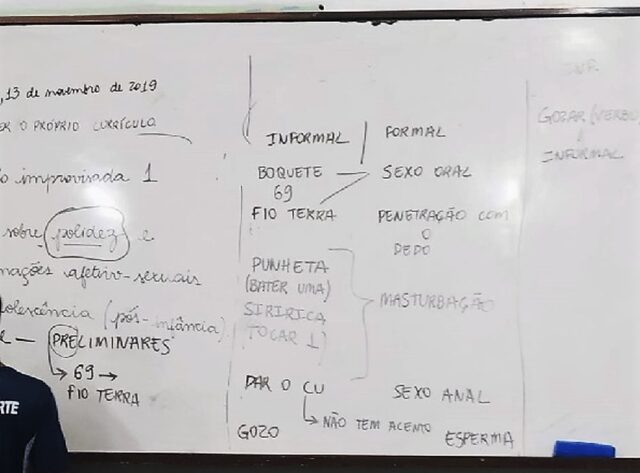 ,13 de novembro de 2019
ER O PRÓPRIO CURRÍCULO
o improvisada 1
sobre polidez e
mações afetivo-sexuais
dolescência (pós-infância)
e — PRELIMINARES
→ 69 →
FIO TERRA
RTE
INFORMAL
FORMAL
BOQUETE
SEXO ORAL
69
FIO TERRA
PENETRAÇÃO COM
O
DEDO
PUNHETA
(BATER UMA)
MASTURBAÇÃO
SIRIRICA
(TOCAR 1)
DAR O CU
SEXO ANAL
NÃO TEM ACENTO
GOZO
ESPERMA
GOZAR (VERBO)
INFORMAL